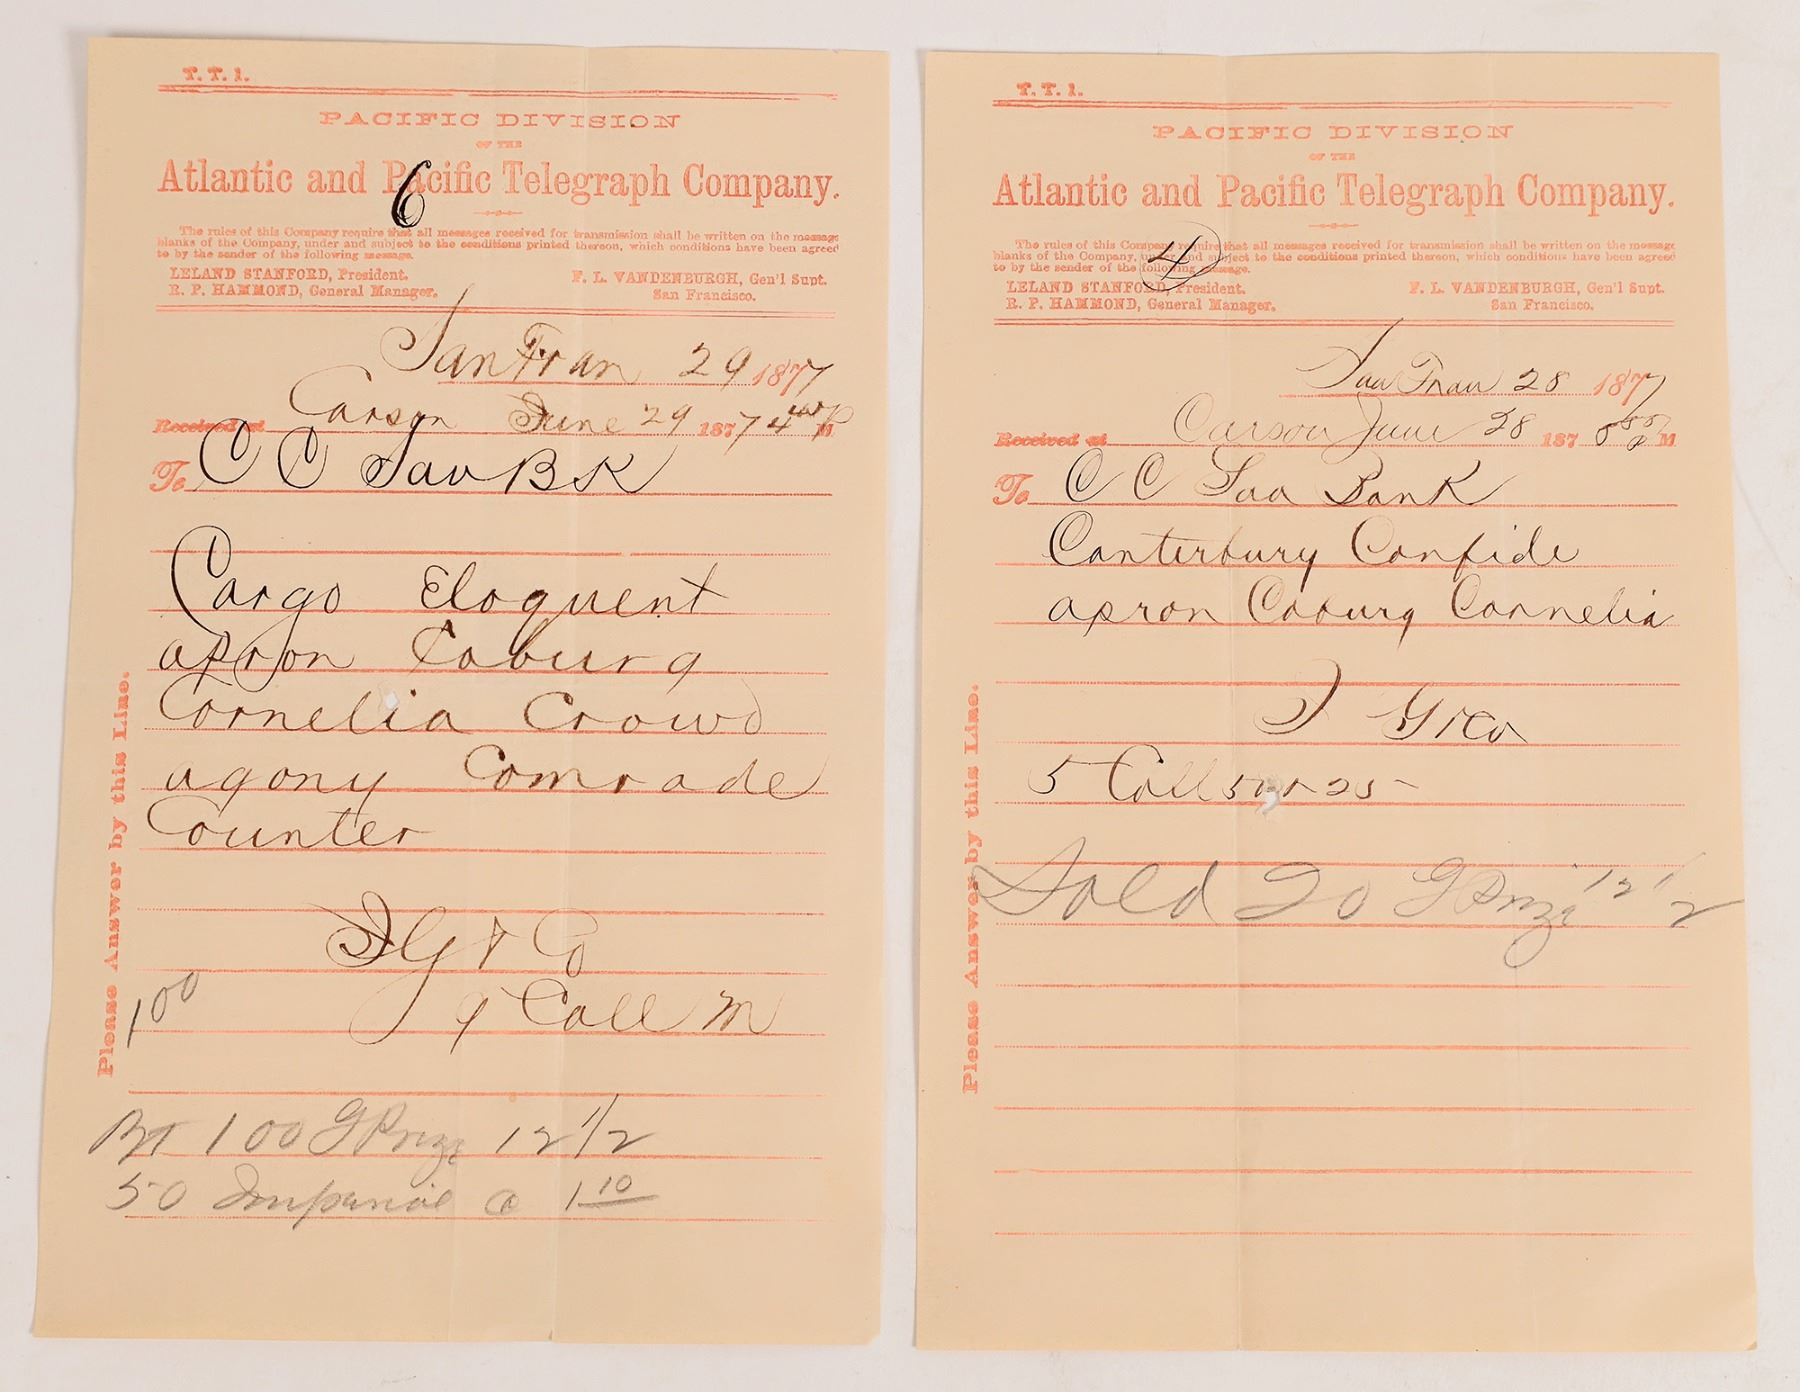 T. T. 1.
PACIFIC DIVISION
OF THE
Atlantic and Pacific Telegraph Company.
6
The rules of this Company require that all messages received for transmission shall be written on the message
blanks of the Company, under and subject to the conditions printed thereon, which conditions have been agreed
to by the sender of the following message.
LELAND STANFORD, President.
R. P. HAMMOND, General Manager.
F. L. VANDENBURGH, Gen'l Supt.
San Francisco.
San Fran 29 1877
Received at Carson June 29 1877 4 P M
To C C Sav BK
Cargo Eloquent
apron Coburg
Cornelia Crowd
agony Comrade
Counter
J G & Co
100
9 Coll M
Please Answer by this Line.
BT 100 G Prize 12 1/2
50 Imperial @ 1 10
T. T. 1.
PACIFIC DIVISION
OF THE
Atlantic and Pacific Telegraph Company.
The rules of this Company require that all messages received for transmission shall be written on the message
blanks of the Company, under and subject to the conditions printed thereon, which conditions have been agreed
to by the sender of the following message.
4
LELAND STANFORD, President.
R. P. HAMMOND, General Manager.
F. L. VANDENBURGH, Gen'l Supt.
San Francisco.
San Fran 28 1877
Received at Carson June 28 187 M
To C C Sav Bank
Canterbury Confide
apron Coburg Cornelia
J G & Co
5 Coll
Please Answer by this Line.
Sold 20 G Prize 12 1/2